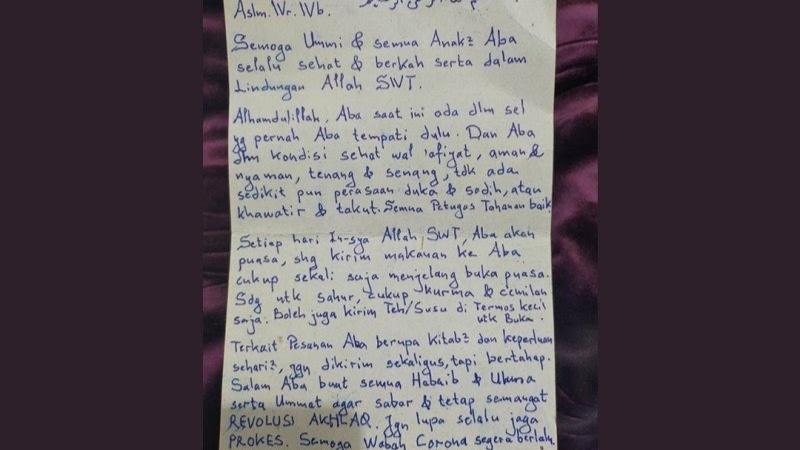 Aslm. Wr. Wb.
Semoga Ummi & semua Anak2 Aba
selalu sehat & berkah serta dalam
Lindungan Allah SWT.
Alhamdulillah, Aba saat ini ada dlm sel
yg pernah Aba tempati dulu. Dan Aba
dlm kondisi sehat wal 'afiyat, aman &
nyaman, tenang & senang, tdk ada
sedikit pun perasaan duka & sedih, atau
khawatir & takut. Semua Petugas Tahanan baik.
Setiap hari In-sya Allah SWT, Aba akan
puasa, shg kirim makanan ke Aba
cukup sekali saja menjelang buka puasa.
Sdg utk sahur, cukup kurma & cemilan
saja. Boleh juga kirim Teh/Susu di Termos kecil
utk Buka.
Terkait Pesanan Aba berupa kitab2 dan keperluan
sehari2, jgn dikirim sekaligus, tapi bertahap.
Salam Aba buat semua Habaib & Ulama
serta Ummat agar sabar & tetap semangat
REVOLUSI AKHLAQ. Jgn lupa selalu jaga
PROKES. Semoga Wabah Corona segera berlalu.